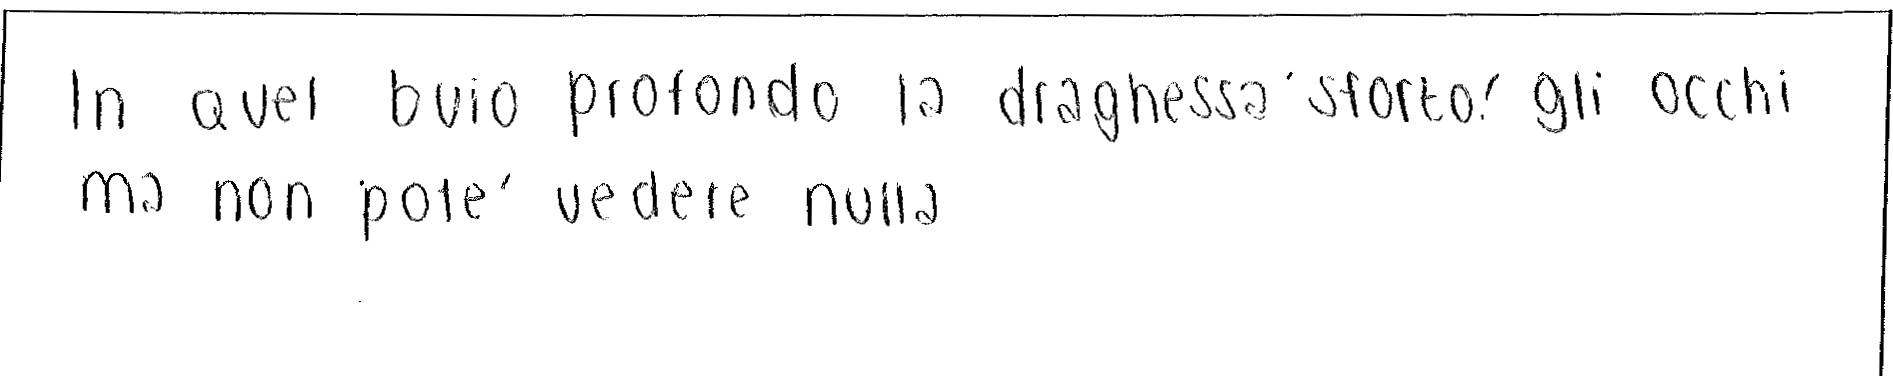 In quel buio profondo la draghessa 'sforto!' gli occhi
ma non pote' vedere nulla